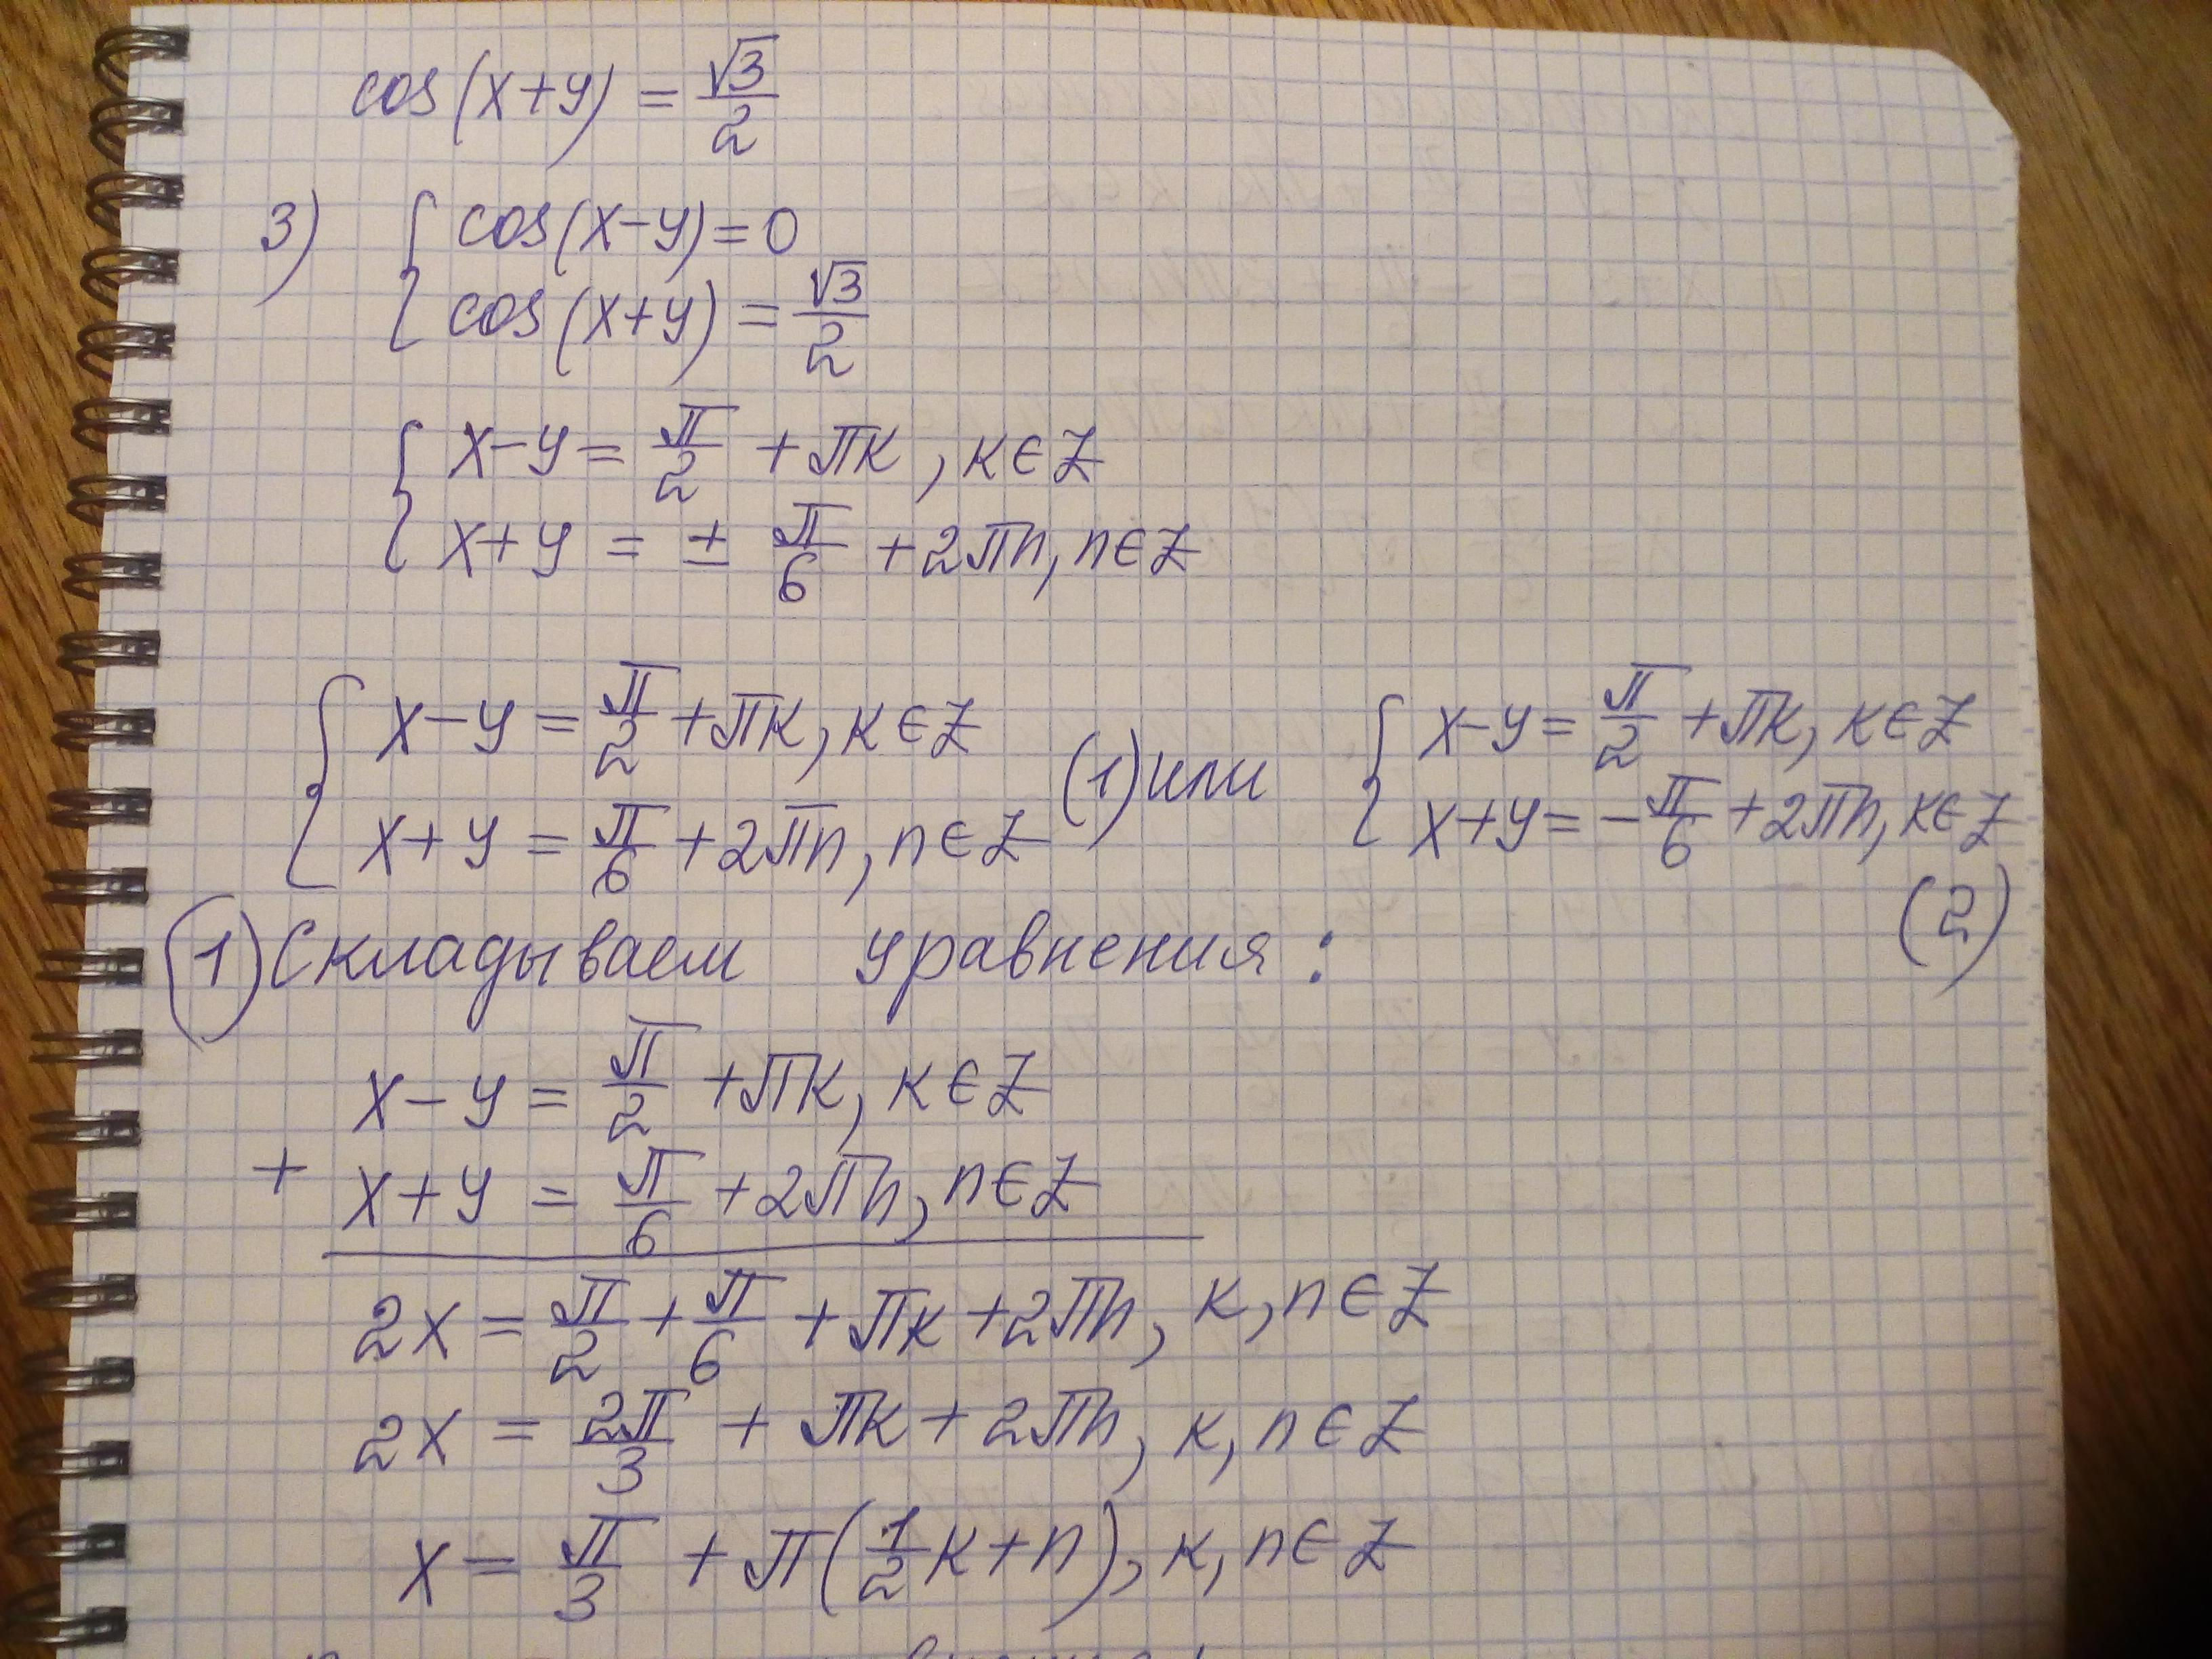 cos(x+y) = √3/2
3) { cos(x-y)=0
cos(x+y) = √3/2
{ x-y = π/2 + πк, к∈Z
x+y = ± π/6 + 2πn, n∈Z
{ x-y = π/2 + πк, к∈Z
x+y = π/6 + 2πn, n∈Z
(1) или
{ x-y = π/2 + πк, к∈Z
x+y = -π/6 + 2πn, к∈Z
(2)
1) Складываем уравнения:
x-y = π/2 + πк, к∈Z
+ x+y = π/6 + 2πn, n∈Z
2x = π/2 + π/6 + πк + 2πn, к, n∈Z
2x = 2π/3 + πк + 2πn, к, n∈Z
x = π/3 + π(1/2 к+n), к, n∈Z